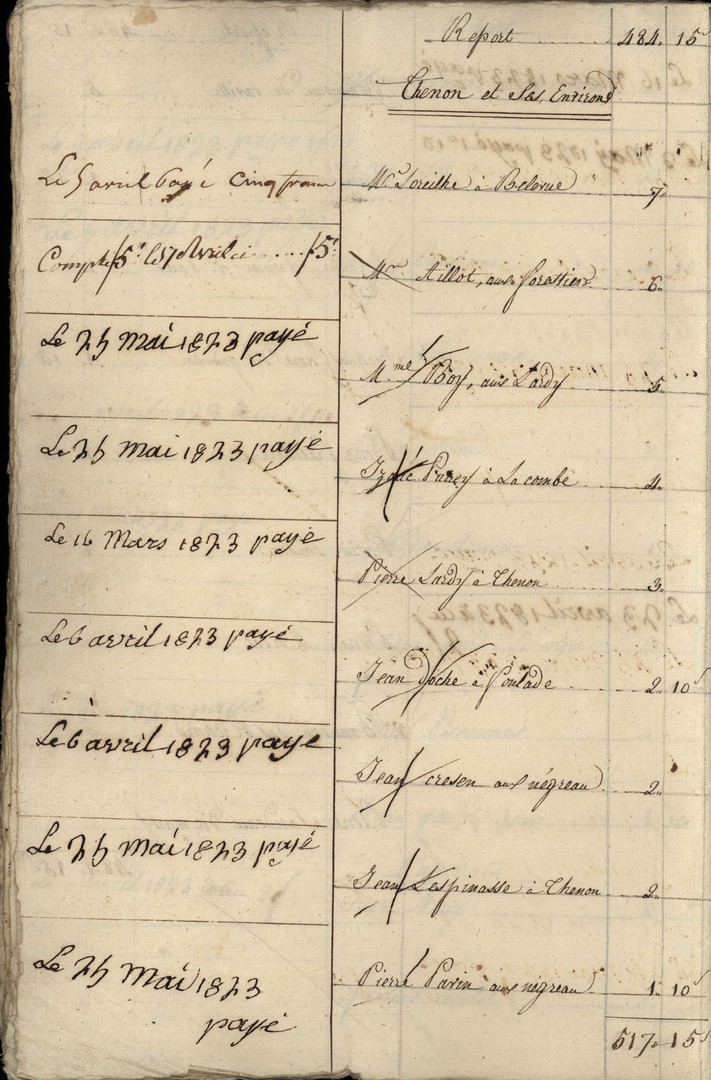 Report 484. 15ˢ
Thenon et Ses Environs
Le 5 avril payé Cinq francs
Mʳ Soreilhe à Belevue 7"
Compte 5ᶠ le 17 Avril ci 5ᶠ
Mʳ Aillot, aux 6"
Le 25 Mai 1823 payé
Mᵐᵉ Boy, aux Lardy 5"
Le 25 Mai 1823 payé
Izaac à La combe 4"
Le 16 Mars 1823 payé
Pierre Lardy à Thenon 3"
Le 6 avril 1823 payé
Jean Doche à Goulade 2" 10ˢ
Le 6 avril 1823 payé
Jean cresen aux négreau 2"
Le 25 Mai 1823 payé
Jean Lespinasse à Thenon 2"
Le 25 Mai 1823
payé
Pierre Parin aux négreau 1" 10ˢ
517" 15ˢ